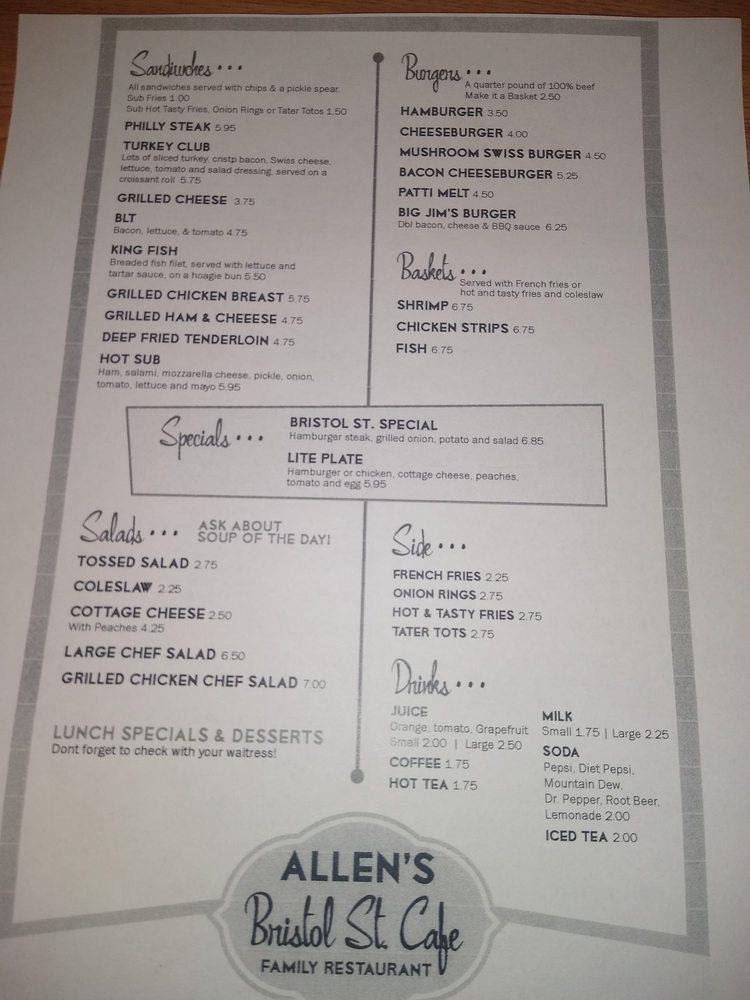 Sandiwches...
All sandwiches served with chips & a pickle spear.
Sub Fries 1.00
Sub Hot Tasty Fries, Onion Rings or Tater Totos 1.50
PHILLY STEAK 5.95
TURKEY CLUB
Lots of sliced turkey, cristp bacon, Swiss cheese,
lettuce, tomato and salad dressing, served on a
croissant roll 5.75
GRILLED CHEESE 3.75
BLT
Bacon, lettuce, & tomato 4.75
KING FISH
Breaded fish filet, served with lettuce and
tartar sauce, on a hoagie bun 5.50
GRILLED CHICKEN BREAST 5.75
GRILLED HAM & CHEEESE 4.75
DEEP FRIED TENDERLOIN 4.75
HOT SUB
Ham, salami, mozzarella cheese, pickle, onion,
tomato, lettuce and mayo 5.95
Burgers...
A quarter pound of 100% beef
Make it a Basket 2.50
HAMBURGER 3.50
CHEESEBURGER 4.00
MUSHROOM SWISS BURGER 4.50
BACON CHEESEBURGER 5.25
PATTI MELT 4.50
BIG JIM'S BURGER
Dbl bacon, cheese & BBQ sauce 6.25
Baskets...
Served with French fries or
hot and tasty fries and coleslaw
SHRIMP 6.75
CHICKEN STRIPS 6.75
FISH 6.75
Specials...
BRISTOL ST. SPECIAL
Hamburger steak, grilled onion, potato and salad 6.85
LITE PLATE
Hamburger or chicken, cottage cheese, peaches,
tomato and egg 5.95
Salads...
ASK ABOUT
SOUP OF THE DAY!
TOSSED SALAD 2.75
COLESLAW 2.25
COTTAGE CHEESE 2.50
With Peaches 4.25
LARGE CHEF SALAD 6.50
GRILLED CHICKEN CHEF SALAD 7.00
LUNCH SPECIALS & DESSERTS
Dont forget to check with your waitress!
Side...
FRENCH FRIES 2.25
ONION RINGS 2.75
HOT & TASTY FRIES 2.75
TATER TOTS 2.75
Drinks...
JUICE
Orange, tomato, Grapefruit
Small 2.00 | Large 2.50
COFFEE 1.75
HOT TEA 1.75
MILK
Small 1.75 | Large 2.25
SODA
Pepsi, Diet Pepsi,
Mountain Dew,
Dr. Pepper, Root Beer,
Lemonade 2.00
ICED TEA 2.00
ALLEN'S
Bristol St. Cafe
FAMILY RESTAURANT